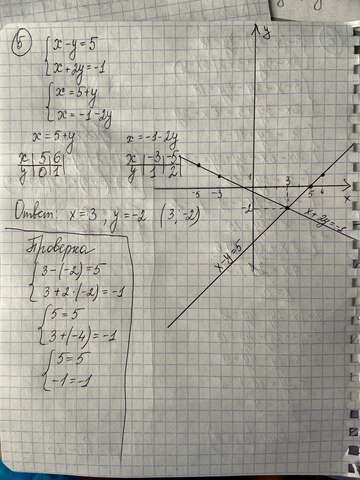 5
{ x-y=5
{ x+2y=-1
{ x=5+y
{ x=-1-2y
x=5+y
x | 5 | 6
y | 0 | 1
x=-1-2y
x | -3 | -5
y | 1 | 2
Ответ: x=3, y=-2 (3, -2)
Проверка
{ 3-(-2)=5
{ 3+2·(-2)=-1
{ 5=5
{ 3+(-4)=-1
{ 5=5
{ -1=-1
y
-5 -3 1 3 5 6
x
-2
x+2y=-1
x-y=5